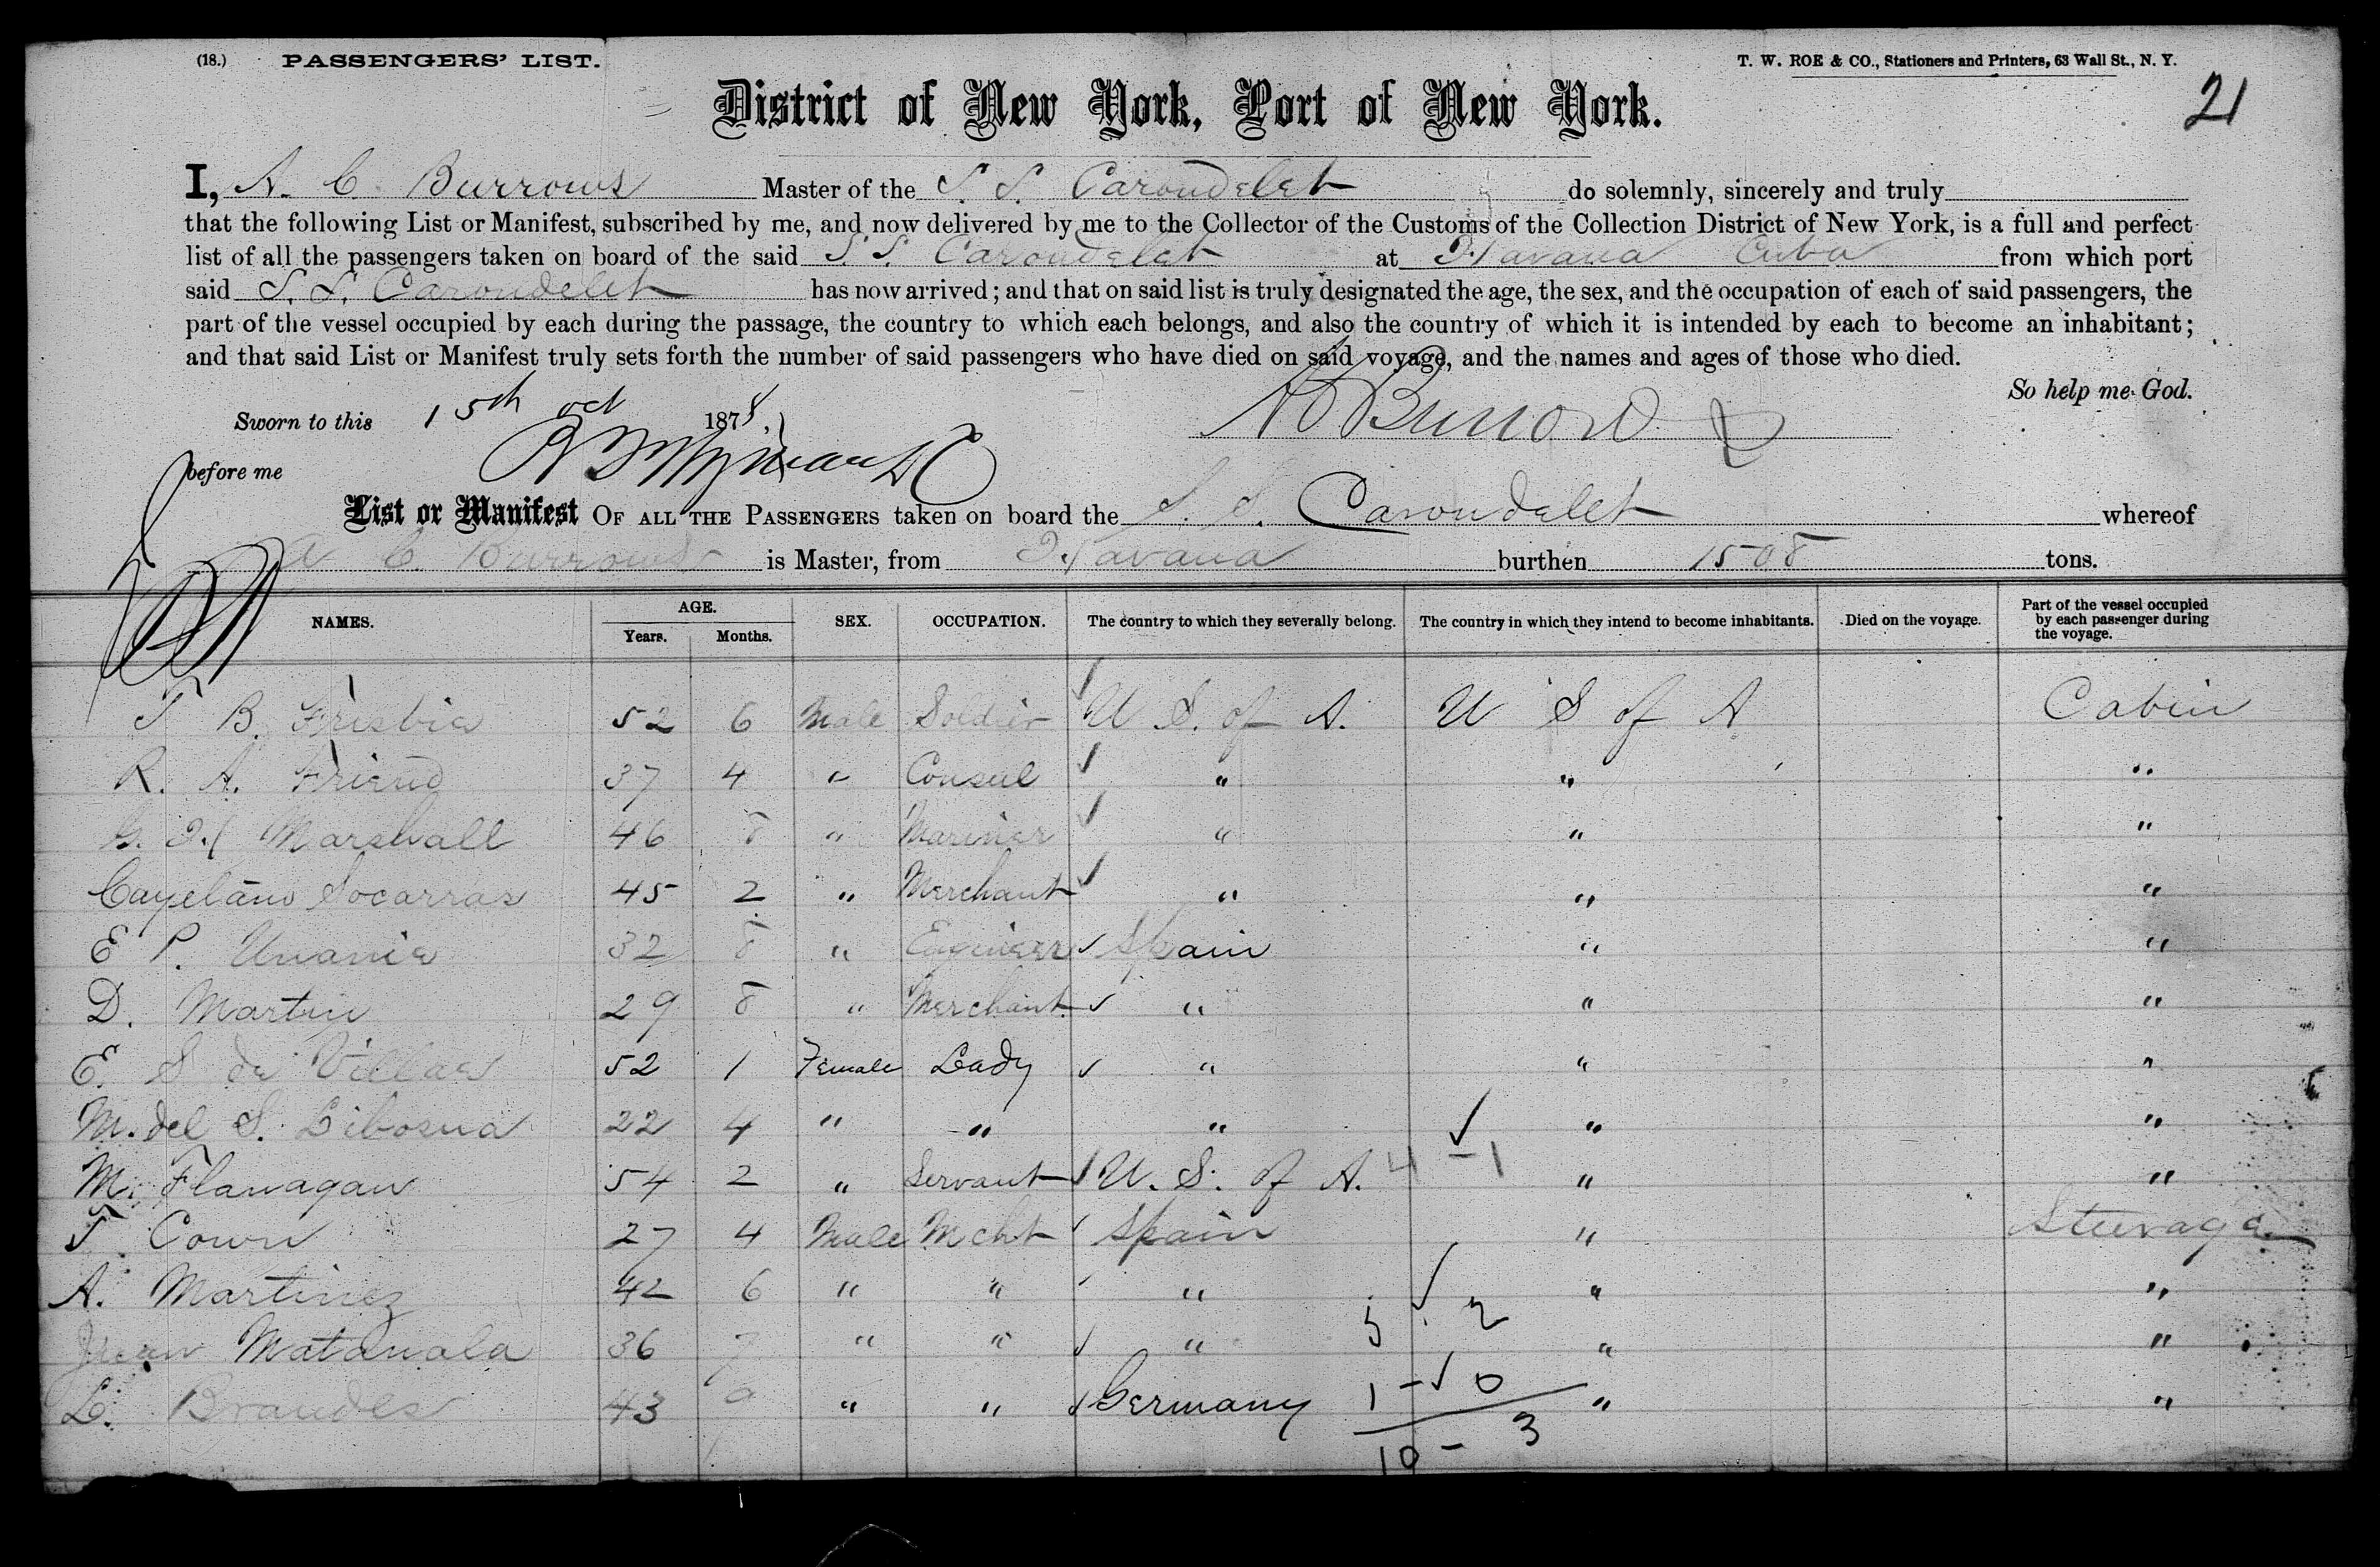 (18.) PASSENGERS' LIST. T. W. ROE & CO., Stationers and Printers, 63 Wall St., N. Y.
21
District of New York, Port of New York.
I, A. C. Burrows Master of the S. S. Carondelet do solemnly, sincerely and truly
that the following List or Manifest, subscribed by me, and now delivered by me to the Collector of the Customs of the Collection District of New York, is a full and perfect
list of all the passengers taken on board of the said S. S. Carondelet at Havana Cuba from which port
said S. S. Carondelet has now arrived; and that on said list is truly designated the age, the sex, and the occupation of each of said passengers, the
part of the vessel occupied by each during the passage, the country to which each belongs, and also the country of which it is intended by each to become an inhabitant;
and that said List or Manifest truly sets forth the number of said passengers who have died on said voyage, and the names and ages of those who died.
So help me God.
Sworn to this 15th oct 1878, A C Burrows
before me
List or Manifest OF ALL THE PASSENGERS taken on board the S. S. Carondelet whereof
A C. Burrows is Master, from Havana burthen 1508 tons.
NAMES. AGE. Years. Months. SEX. OCCUPATION. The country to which they severally belong. The country in which they intend to become inhabitants. Died on the voyage. Part of the vessel occupied by each passenger during the voyage.
T B. Frisbie 52 6 Male Soldier U S. of A. U S of A Cabin
R. A. Friend 37 4 " Consul " " "
G. H Marshall 46 8 " Mariner " " "
Cayetano Socarras 45 2 " Merchant " " "
E P. Unanie 32 8 " Engineer Spain " "
D. Martin 29 8 " Merchant " " "
E. S de Villas 52 1 Female Lady " " "
M. del S. Libosna 22 4 " " " " "
M. Flanagan 54 2 " Servant U. S. of A. 4 - 1 " "
T. Cown 27 4 Male Mcht Spain " Steerage
A. Martinez 42 6 " " " " "
Juan Matanala 36 7 " " " 5 2 " "
L. Brandes 43 9 " " Germany 1 - 0 " "
10 - 3